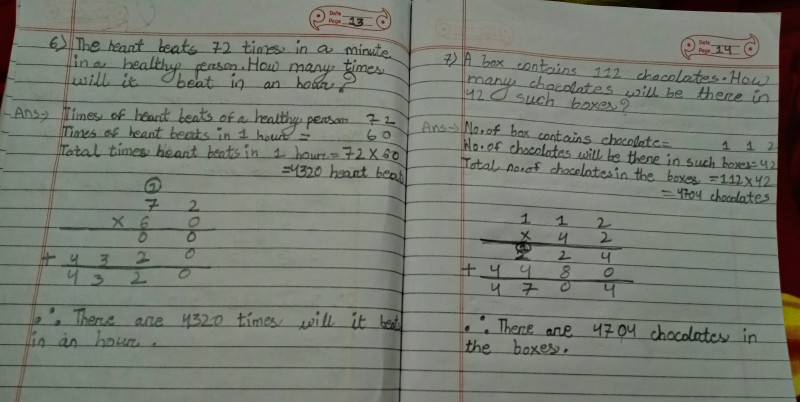 Date
Page 13
6) The heart beats 72 times in a minute
in a healthy person. How many times
will it beat in an hour?
Ans→ Times of heart beats of a healthy person 72
Times of heart beats in 1 hour = 60
Total times heart beats in 1 hour = 72 X 60
= 4320 heart beats
1
7 2
x 6 0
0 0
+ 4 3 2 0
4 3 2 0
∴ There are 4320 times will it beat
in an hour.
Date
Page 14
7) A box contains 112 chocolates. How
many chocolates will be there in
42 such boxes?
Ans→ No. of box contains chocolate = 1 1 2
No. of chocolates will be there in such boxes = 42
Total no. of chocolates in the boxes = 112 x 42
= 4704 chocolates
1 1 2
x 4 2
2 2 4
+ 4 4 8 0
4 7 0 4
∴ There are 4704 chocolates in
the boxes.